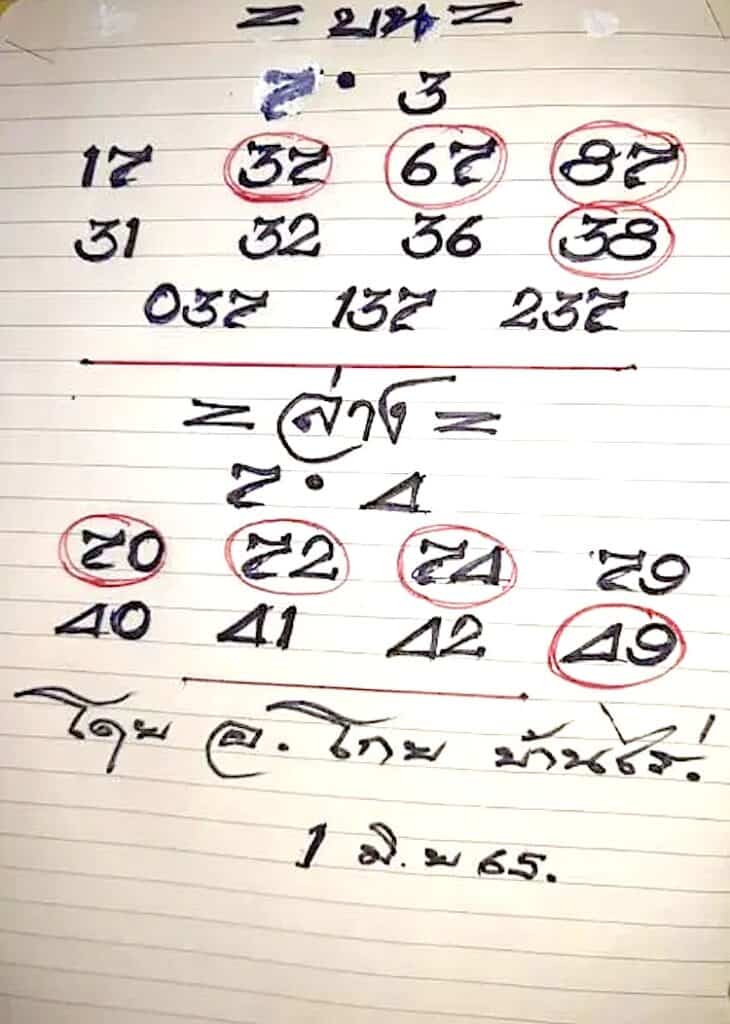 = บน =
7 · 3
17 37 67 87
31 32 36 38
037 137 237
= ล่าง =
7 · 4
70 72 74 79
40 41 42 49
โดย อ. โกย บ้านไร่.
1 มิ.ย 65.